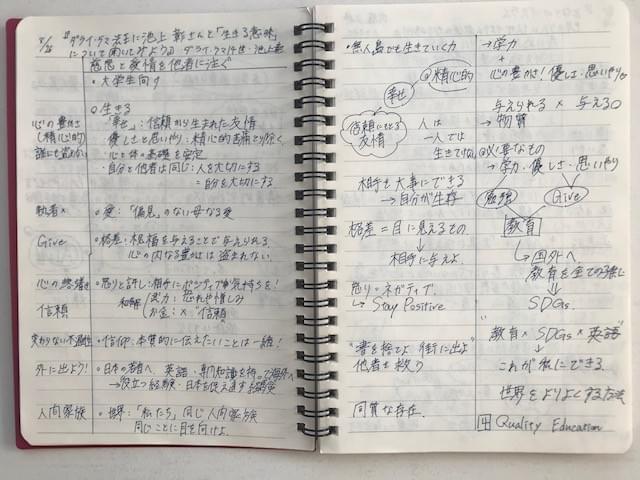 『ダライ・ラマ法王に池上彰さんと「生きる意味」
について聞いてみよう』 ダライ・ラマ14世・池上彰
慈悲と愛情を他者に注ぐ
・大学生向け
○生きる
心の豊かさ
(精神的)
「幸せ」：信頼から生まれた友情
優しさと思いやり：精神的苦痛を取り除く
心と体の基礎を安定
・自分と他者は同じ：人を大切にする
＝自分を大切にする
執着×
○愛：「偏見」のない母なる愛
Give
・格差・祝福を与えることで与えられる
心の内なる豊かさは盗まれない
信頼
・怒りと許し：相手にポジティブな気持ちを！
武力：恐れや憎しみ
お金：× 信頼
変わらない不適性
・信仰：本質的に伝えたいことは一緒！
外に出よう！
・日本の若者へ 英語・専門知識を持って海外へ
→役立つ経験・日本を促え直す経験
人間家族
・世界：「私たち」同じ人間家族
同じことに目を向けよ
・無人島でも生きていく力
→学力
+
心の豊かさ！優しさ・思いやり
幸せ
精神的
与えられる × 与える○
→物質
信頼による
友情
人は
一人では
生きてけない
必要なもの
→学力・優しさ・思いやり
相手を大事にできる
→自分が生存
勉強
Give
教育
格差＝目に見えるもの
↓
相手に与えよ
→国外へ
教育を全ての子に
↓
SDGs
怒り・ネガティブ
→Stay Positive
"教育 × SDGs × 英語"
↓
これが私にできる
世界をよりよくする方法
"書を捨てよ 街に出よ"
他者を救う
同質な存在
4 Quality Education